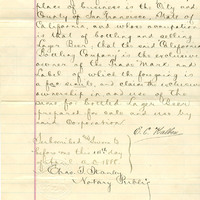 place of business is the City and
County of San Francisco, State of
California and whose occupation
is that of bottling and selling
Lager Beer, that the said California
Bottling Company is the exclusive
owner of the Trade Mark and
Label of which the foregoing is
a fac simile, and claim the exclusive
ownership in and use of the
same for bottled Lager Beer
prepared for sale and use by
said Corporation.
Subscribed & Sworn to
before me this day
of April A.D. 1888
Notary Public